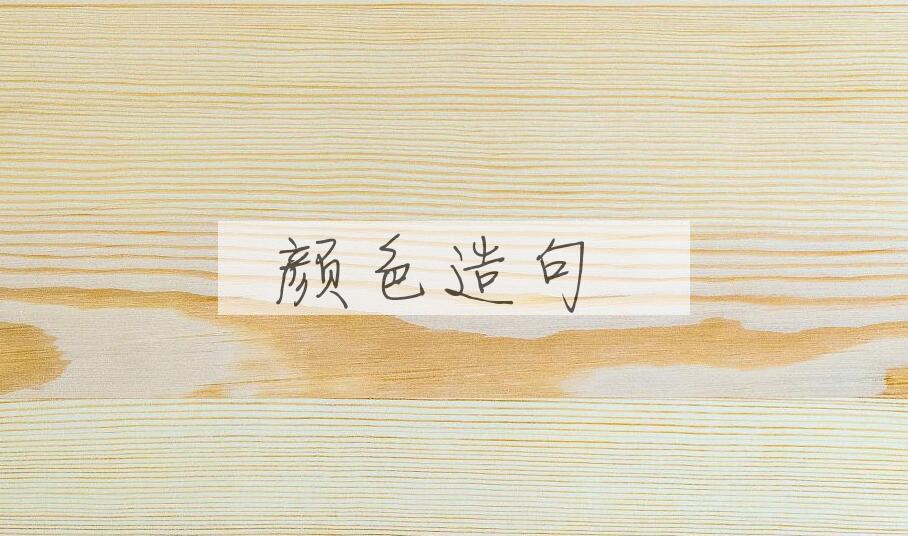 颜色造句